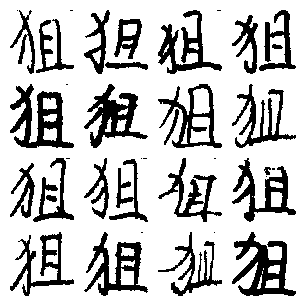 狙狙狙狙
狙狙狙狙
狙狙狙狙
狙狙狙狙